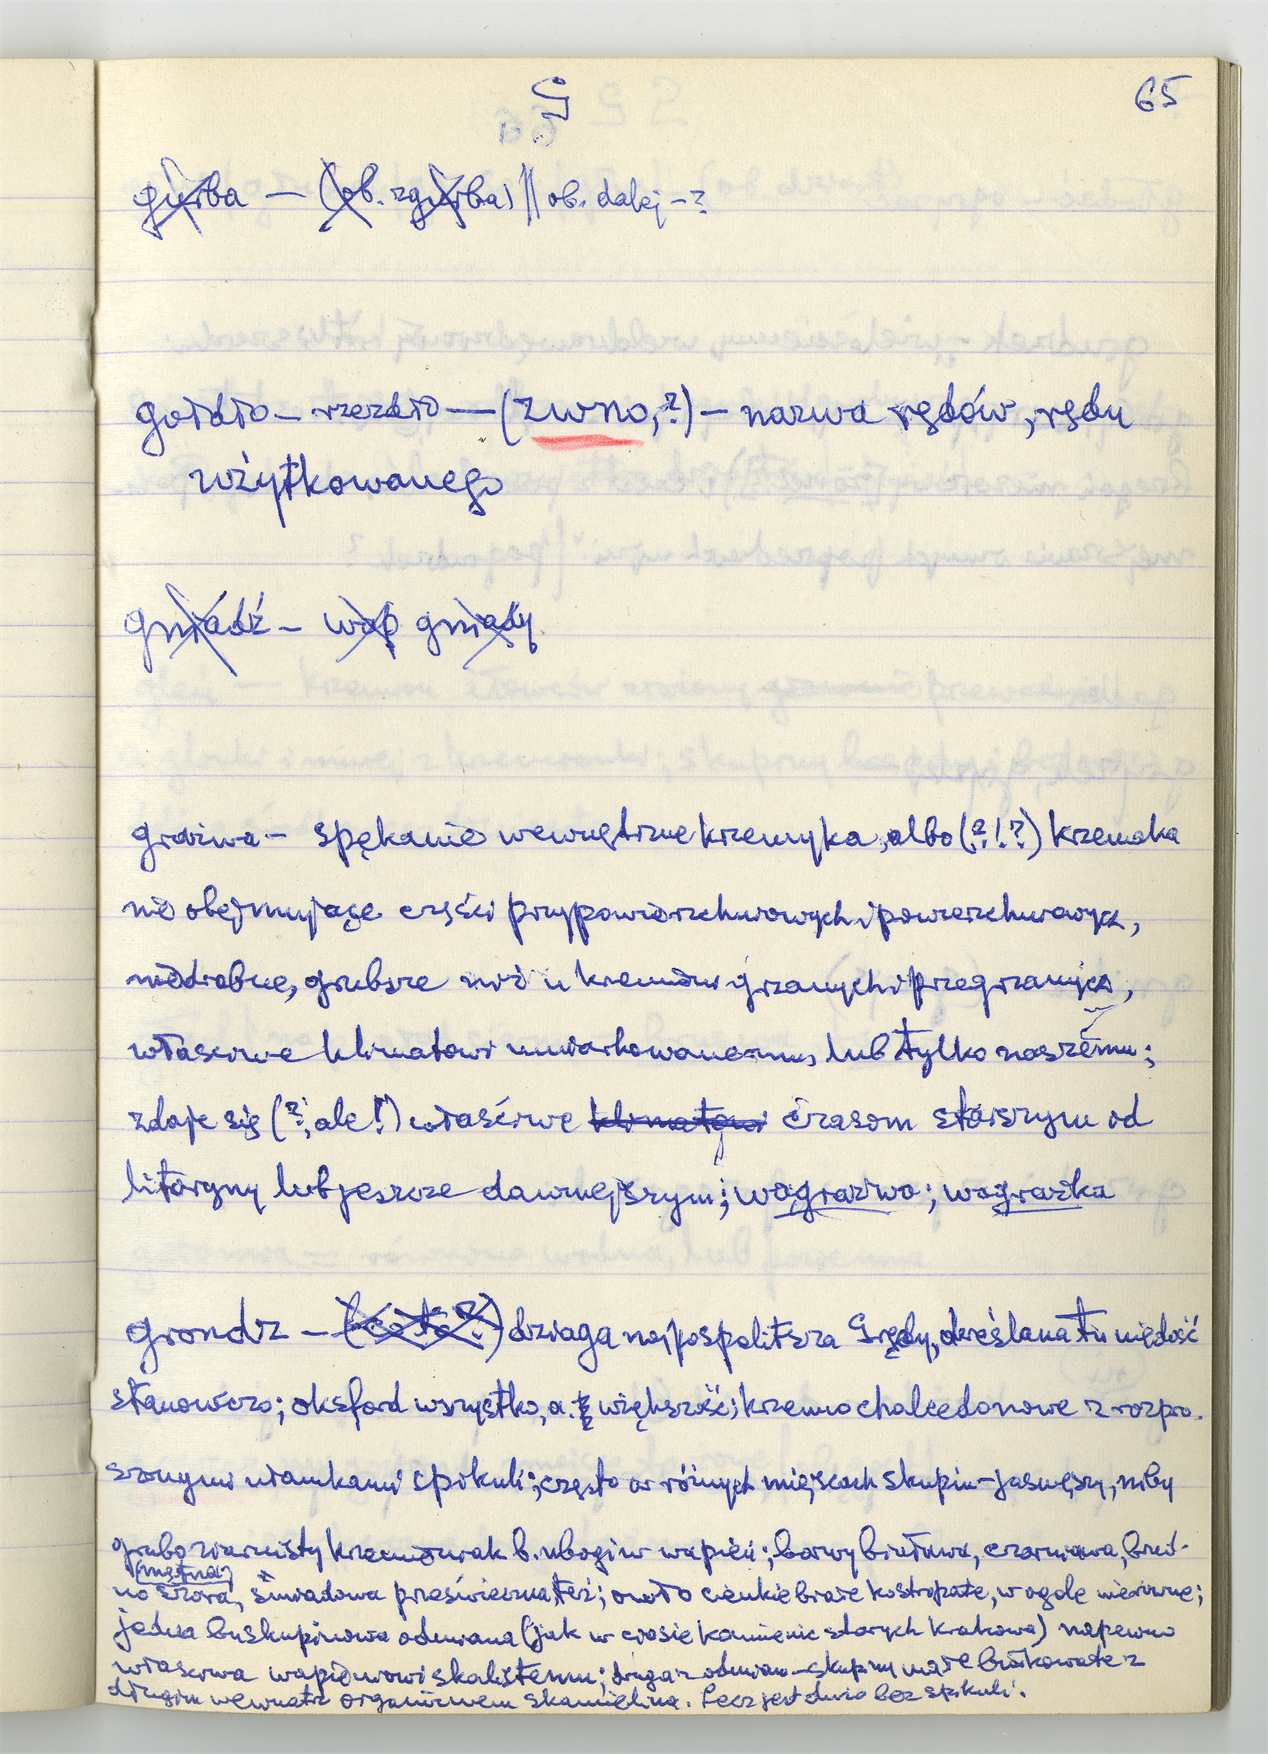 G
65
giurba — (ob. zgiurba) || ob. dalej — ?
goidło — rzezdło — (zwno, ?) — nazwa rzędów, rzędu
zużytkowanego
gniádź — wap gniady
graiwa — spękanie wewnętrzne krzemyka, albo (?!?) krzemaka
nie obejmujące części przypowierzchniowych i powierzchniowych,
niedrobne, grubsze niż u kremów grzanych i przegrzanych,
właściwe klimatowi umiarkowanemu, lub tylko naszemu;
zdaje się (?, ale!) właściwe klimatowi czasom starszym od
litoryny lub jeszcze dawniejszym; wograziwo; wograżka
grondz — (co to ?) dziaga najpospolitsza Grzędy, określana tu niedość
stanowczo; oksford wszystko, a większość; krzemno chalcedonowe z rozpro-
szonymi ułamkami spikuli; często w różnych miejscach skupin — jaśniejszy, niby
grubo ziarnisty krzemionczak b. ubogi w wapień; barwy biaława, czarniawa, brud-
no szora, (mętna) śniadawa prześwieczna też; owoło cienkie białe kostropate, w ogóle nierówne;
jedna bezskupinowa odmiana (jak w ciosie kamienic starych Krakowa) napewno
właściwa wapieniowi skalistemu; druga odmian — skupiny małe bułkowate z
długim wewnątrz organizmem skamielina. Lecz jest dużo bez spikuli.